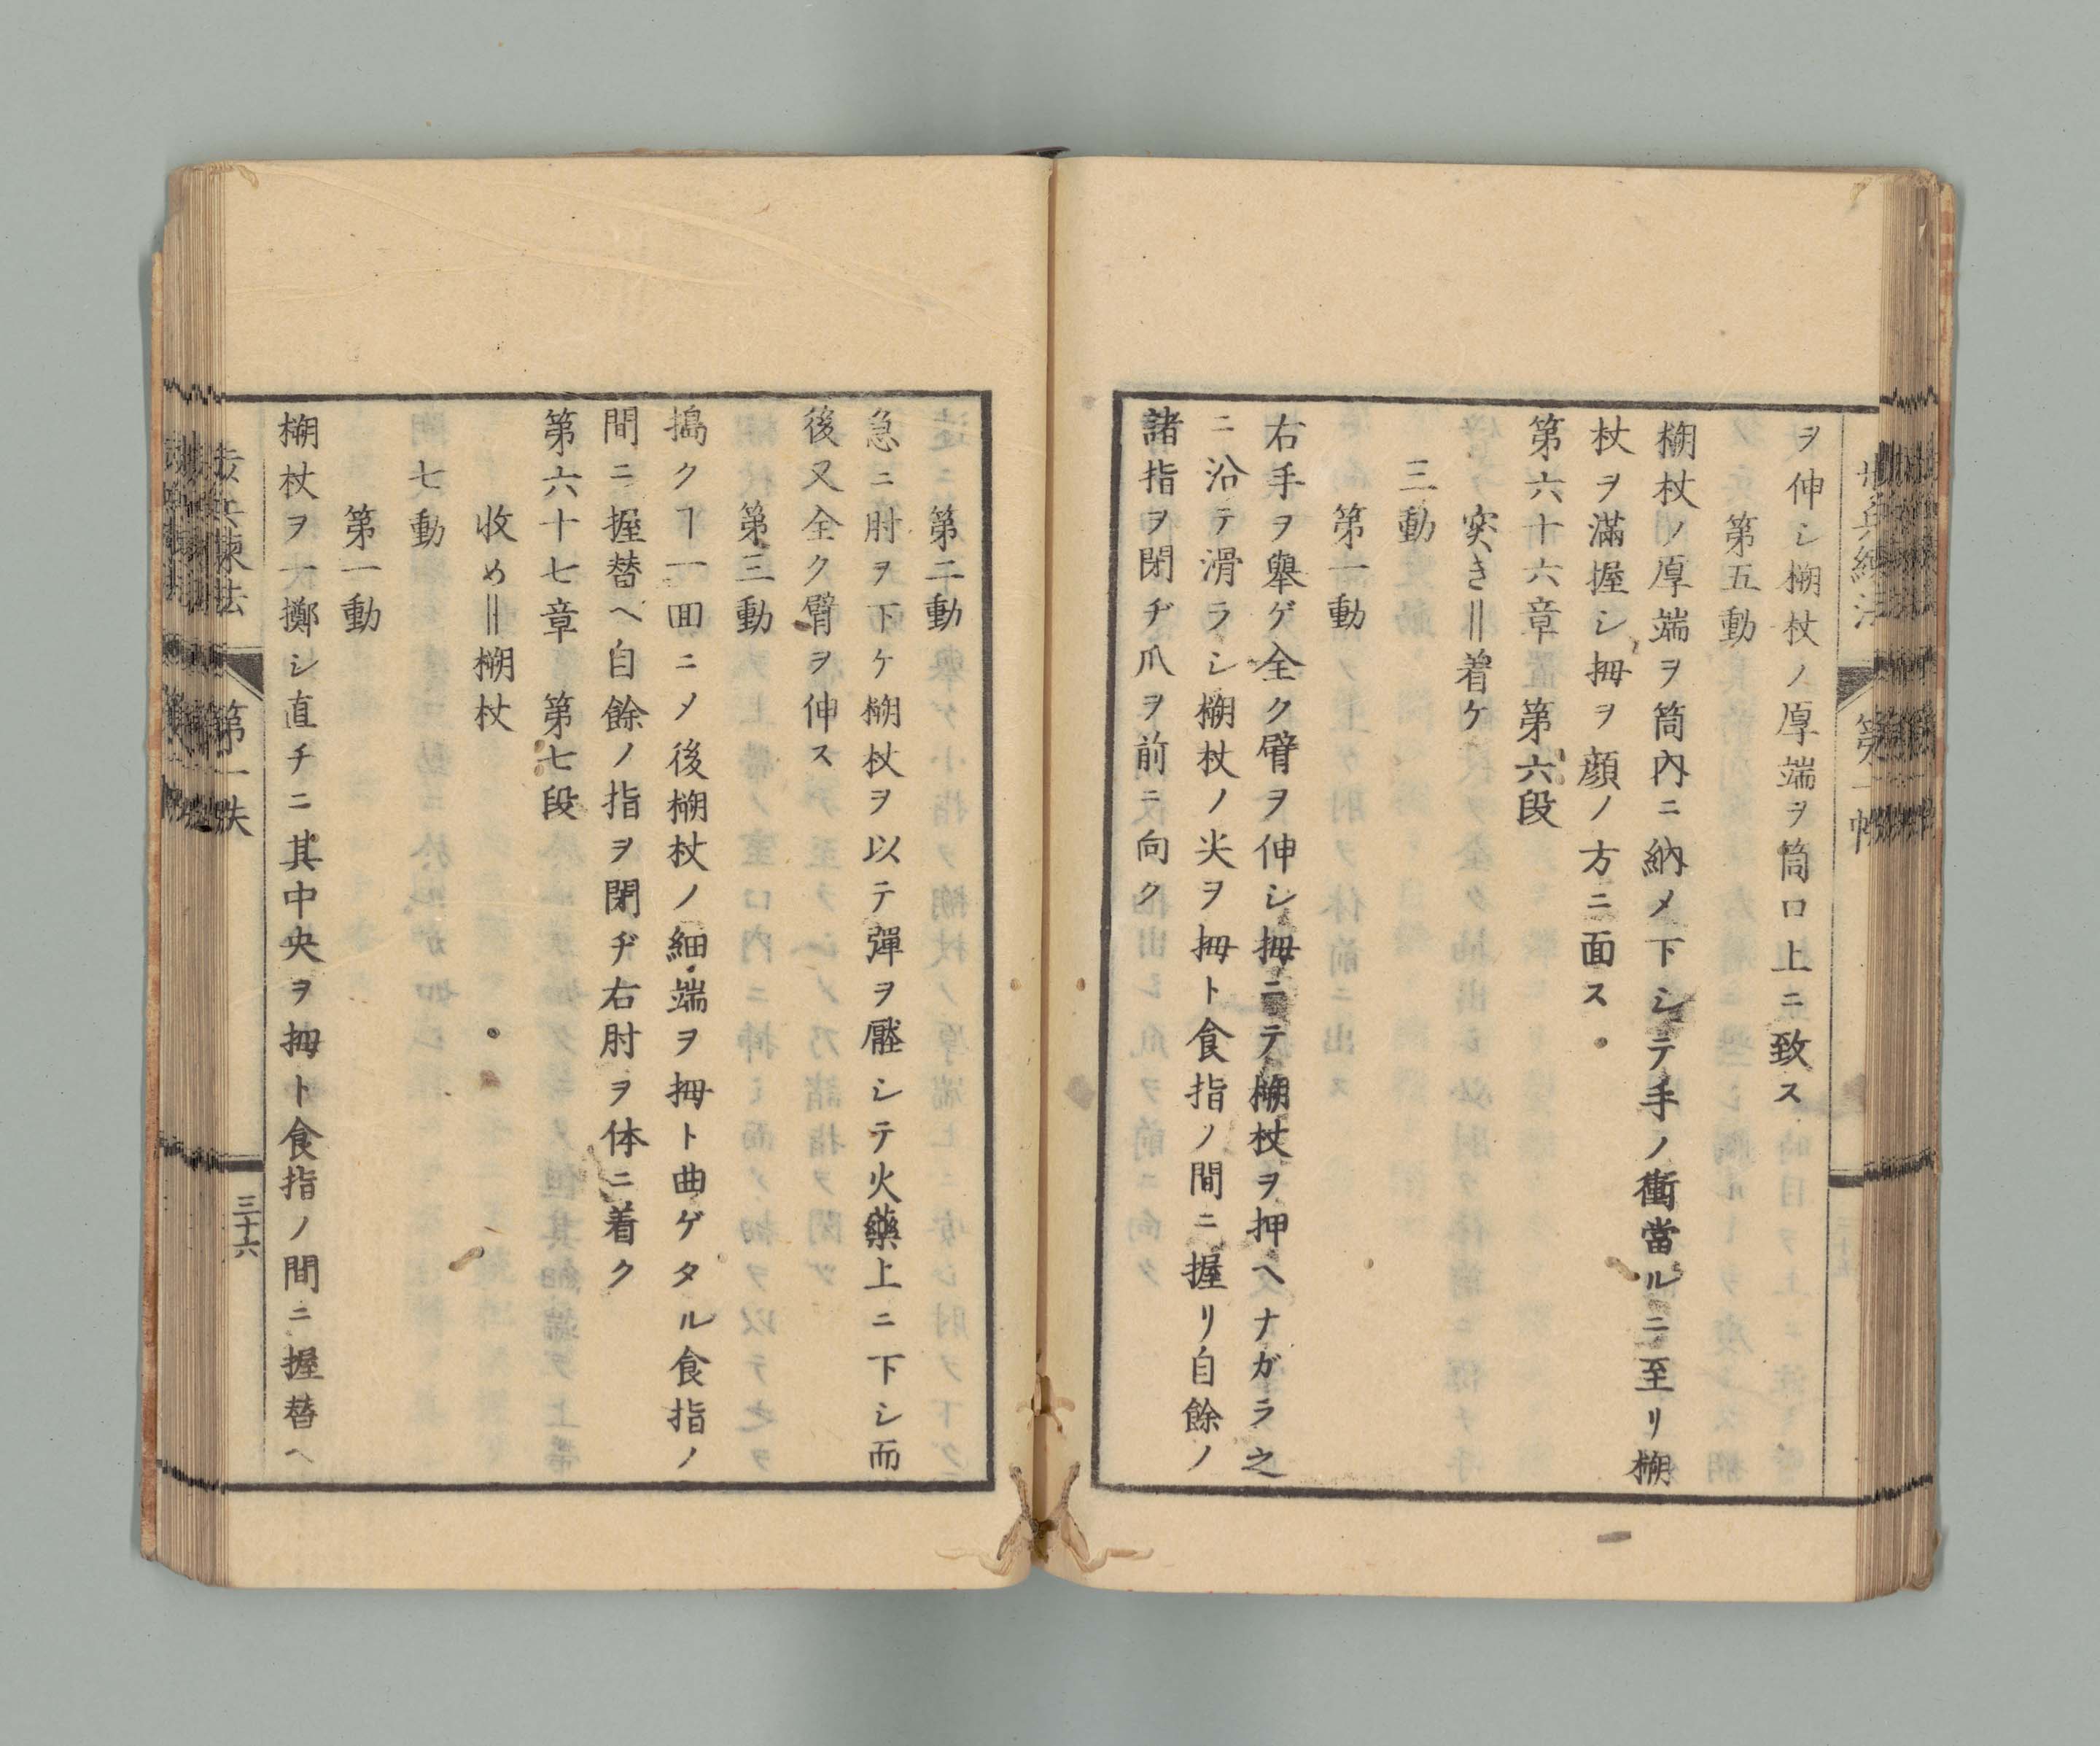 ヲ伸シ槊杖ノ厚端ヲ筒口上ニ致ス
第五動
槊杖ノ厚端ヲ筒内ニ納メ下シテ手ノ衝當ルニ至リ槊
杖ヲ滿握シ拇ヲ顔ノ方ニ面ス
第六十六章 第六段
突き＝着ケ
三動
第一動
右手ヲ舉ゲ全ク臂ヲ伸シ拇ニテ槊杖ヲ押ヘナガラ之
ニ沿テ滑ラシ槊杖ノ尖ヲ拇ト食指ノ間ニ握リ自餘ノ
諸指ヲ閉ヂ爪ヲ前ニ向ク
第二動
急ニ肘ヲ下ケ槊杖ヲ以テ彈ヲ壓シテ火藥上ニ下シ而
後又全ク臂ヲ伸ス
第三動
搗クヿ一回ニメ後槊杖ノ細端ヲ拇ト曲ゲタル食指ノ
間ニ握替ヘ自餘ノ指ヲ閉ヂ右肘ヲ体ニ着ク
第六十七章 第七段
收め＝槊杖
七動
第一動
槊杖ヲ一擲シ直チニ其中央ヲ拇ト食指ノ間ニ握替ヘ
三十六